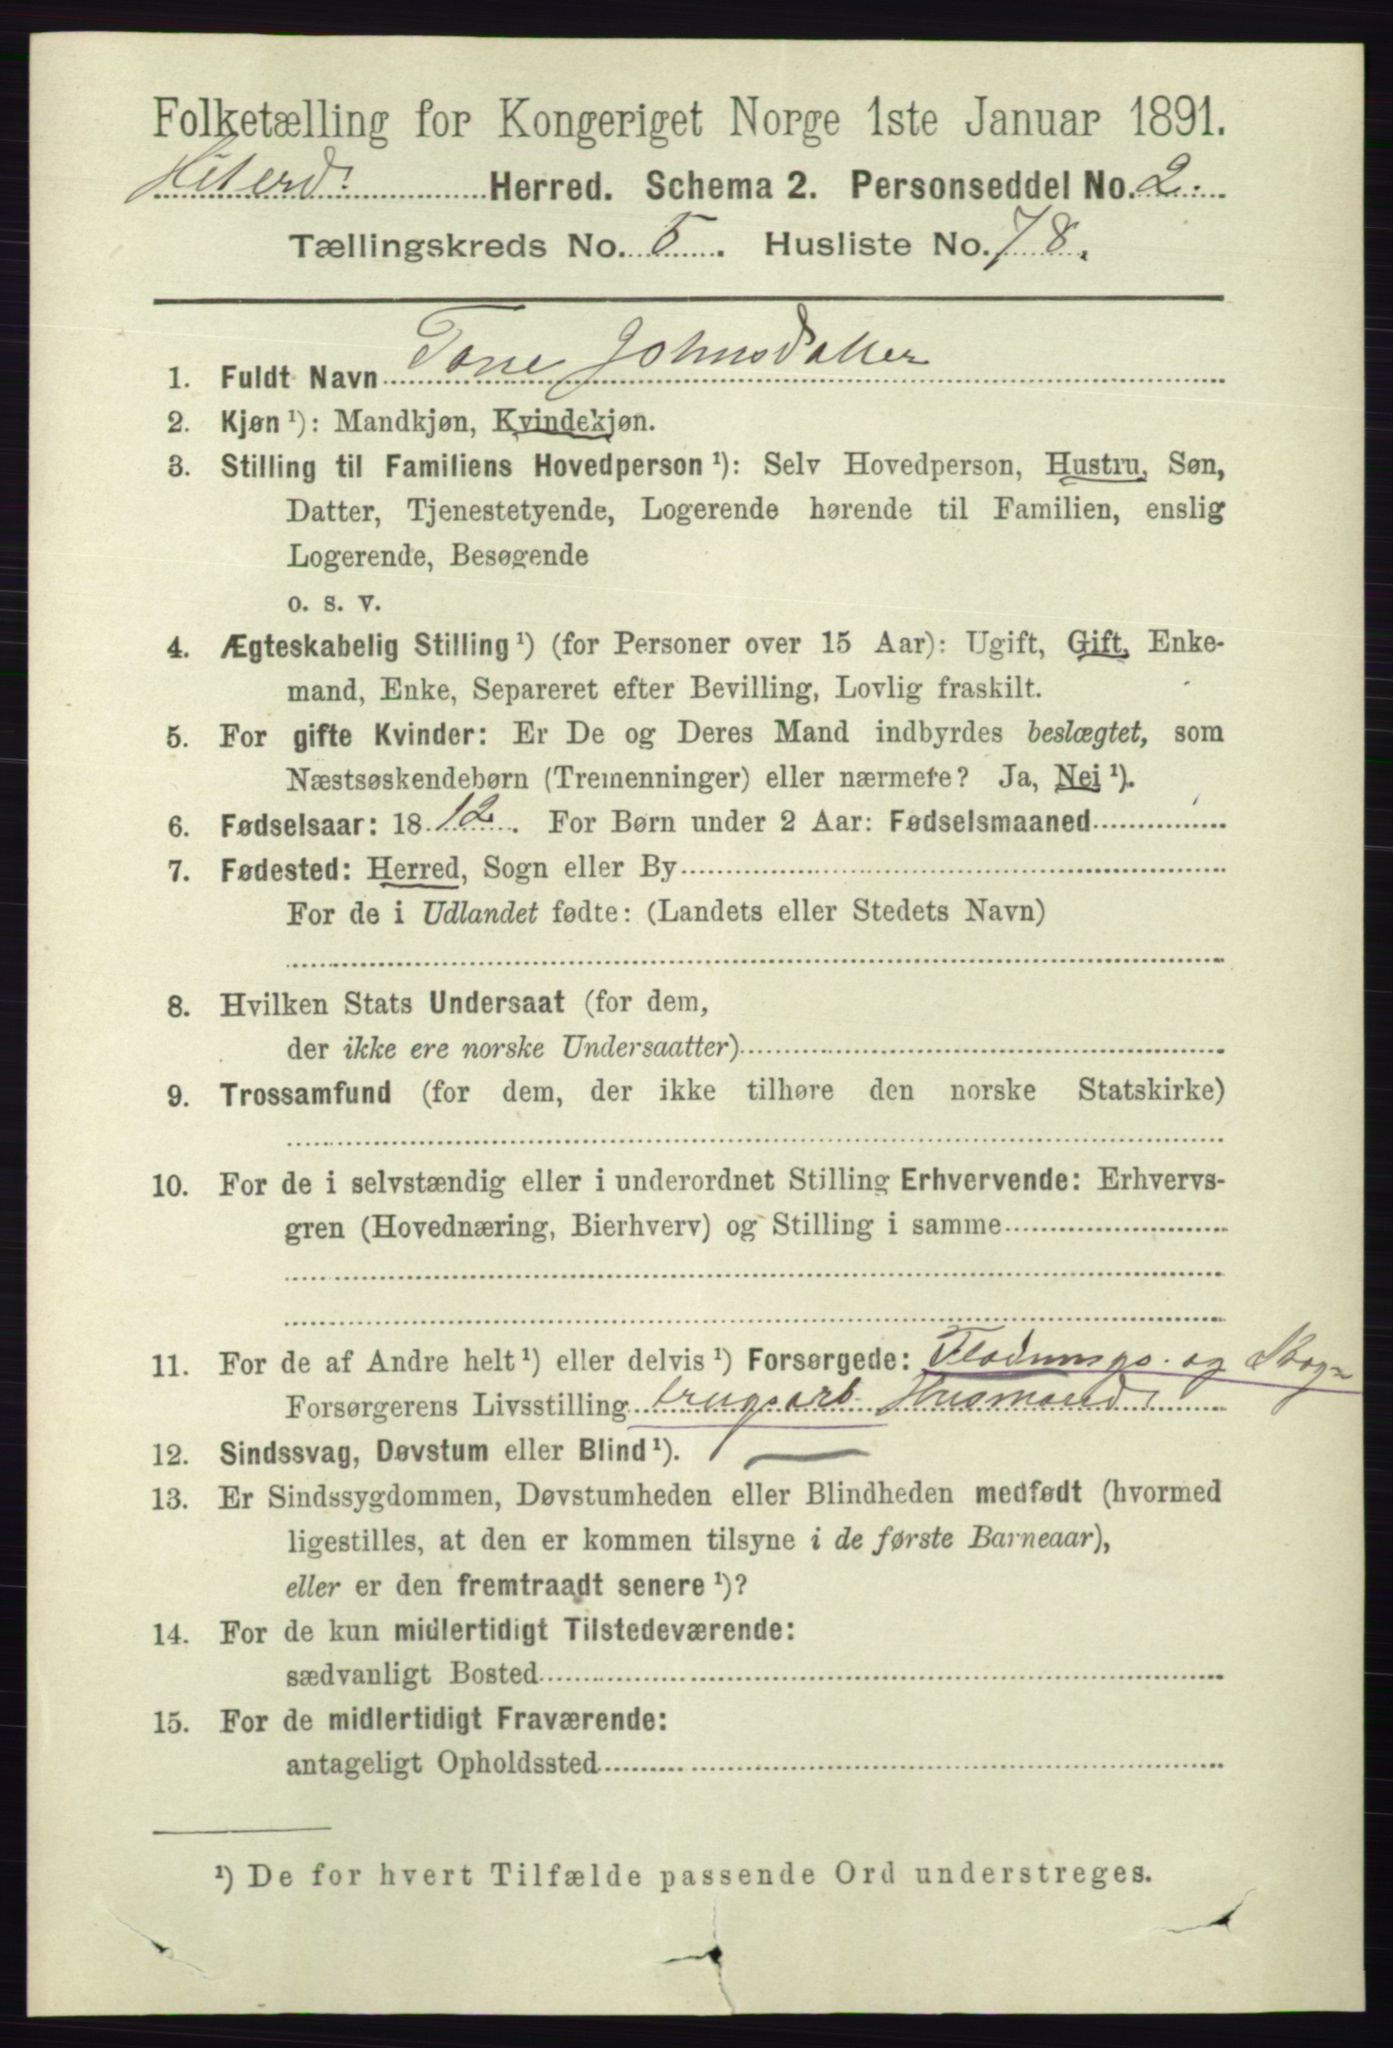 Folketælling for Kongeriget Norge 1ste Januar 1891.
Hiterd. Herred. Schema 2. Personseddel No. 2.
Tællingskreds No. 5. Husliste No. 78.
1. Fuldt Navn Tone Johnsdatter
2. Kjøn ¹): Mandkjøn, Kvindekjøn.
3. Stilling til Familiens Hovedperson ¹): Selv Hovedperson, Hustru, Søn,
Datter, Tjenestetyende, Logerende hørende til Familien, enslig
Logerende, Besøgende
o. s. v.
4. Ægteskabelig Stilling ¹) (for Personer over 15 Aar): Ugift, Gift, Enke-
mand, Enke, Separeret efter Bevilling, Lovlig fraskilt.
5. For gifte Kvinder: Er De og Deres Mand indbyrdes beslægtet, som
Næstsøskendebørn (Tremenninger) eller nærmere? Ja, Nei ¹).
6. Fødselsaar: 1812. For Børn under 2 Aar: Fødselsmaaned
7. Fødested: Herred, Sogn eller By
For de i Udlandet fødte: (Landets eller Stedets Navn)
8. Hvilken Stats Undersaat (for dem,
der ikke ere norske Undersaatter)
9. Trossamfund (for dem, der ikke tilhøre den norske Statskirke)
10. For de i selvstændig eller i underordnet Stilling Erhvervende: Erhvervs-
gren (Hovednæring, Bierhverv) og Stilling i samme
11. For de af Andre helt ¹) eller delvis ¹) Forsørgede: Flødnings- og Skog-
Forsørgerens Livsstilling brugsarb. Husmand
12. Sindssvag, Døvstum eller Blind ¹).
13. Er Sindssygdommen, Døvstumheden eller Blindheden medfødt (hvormed
ligestilles, at den er kommen tilsyne i de første Barneaar),
eller er den fremtraadt senere ¹)?
14. For de kun midlertidigt Tilstedeværende:
sædvanligt Bosted
15. For de midlertidigt Fraværende:
antageligt Opholdssted
¹) De for hvert Tilfælde passende Ord understreges.